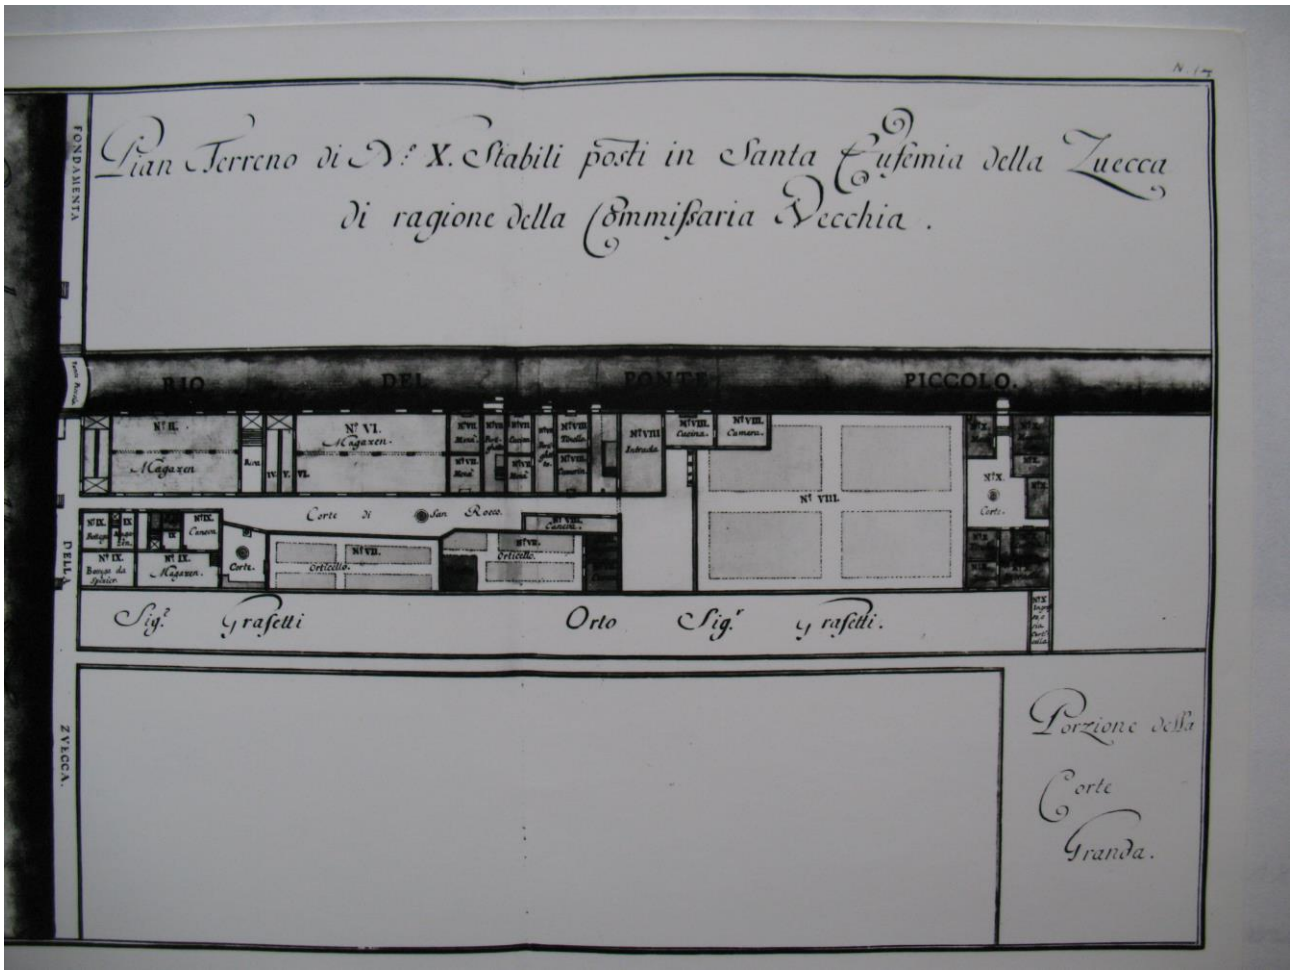 FONDAMENTA
Pian Terreno di N.º X. Stabili posti in Santa Eufemia della Zuecca
di ragione della Commissaria Vecchia.
RIO DEL PONTE PICCOLO.
Nº II.
Magazen
Riva
IV. V. VI.
Nº VI.
Magazen.
Nº VII.
Nº VII.
Nº VIII
Intrada.
Nº VIII.
Cucina.
Nº VIII.
Camera.
Nº VIII.
Nº X.
Corte.
Corte di San Rocco.
Nº IX.
Bottega
IX
Nº IX.
Caneva
Nº IX.
Nº IX.
Magazen.
Corte.
Nº VII.
Orticello.
Nº VIII.
Caneva.
Nº VII.
Orticello.
DELLA
Sig.r Grasetti Orto Sig.r Grasetti.
Nº X
ZVECCA.
Porzione della
Corte
Granda.